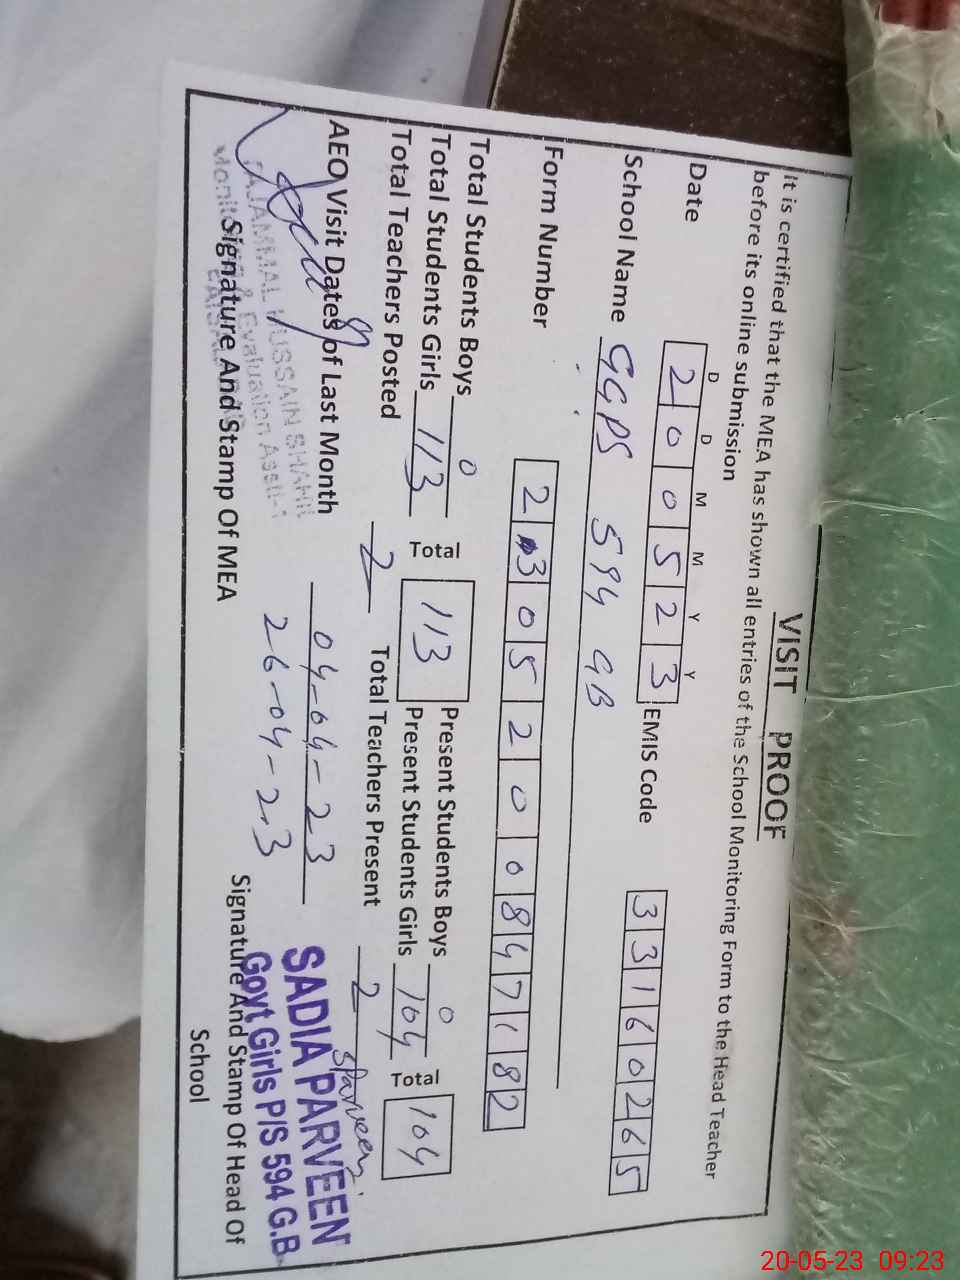 VISIT PROOF
It is certified that the MEA has shown all entries of the School Monitoring Form to the Head Teacher
before its online submission
D D M M Y Y
Date 2 0 0 5 2 3 EMIS Code 3 3 1 6 0 2 6 5
School Name GGPS 594 GB
Form Number 2 3 0 5 2 0 0 8 4 7 1 8 2
Total Students Boys 0 Present Students Boys 0
Total Students Girls 113 Total 113 Present Students Girls 104 Total 104
Total Teachers Posted 2 Total Teachers Present 2
AEO Visit Dates of Last Month 04-04-23
26-04-23
Sparveen
SADIA PARVEEN
Govt Girls P/S 594 G.B
HUSSAIN
Monitoring & Evaluation
Signature And Stamp Of MEA
Signature And Stamp Of Head Of
School
20-05-23 09:23